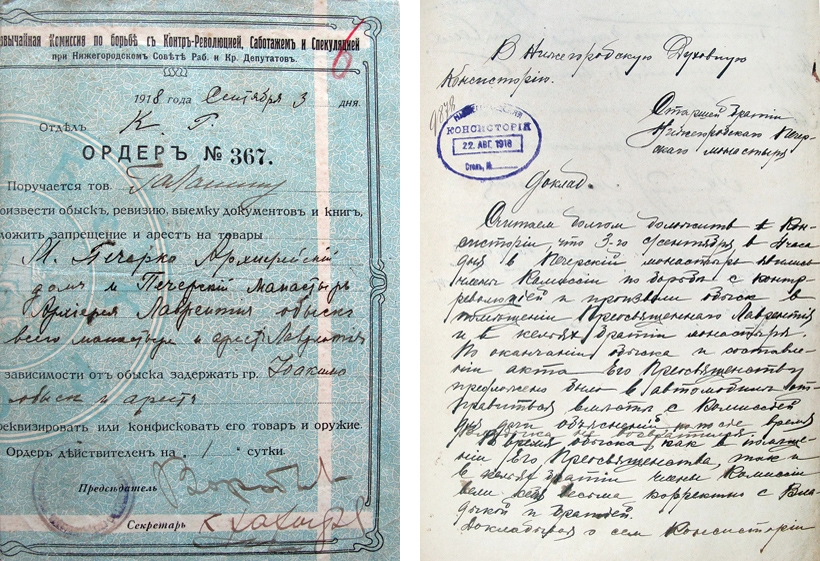 вычайная Комиссия по борьбѣ съ Контръ-Революціей, Саботажемъ и Спекуляціей
при Нижегородскомъ Совѣтѣ Раб. и Кр. Депутатовъ.
6
1918 года Сентября 3 дня.
Отдѣлъ К. Р.
ОРДЕРЪ № 367.
Поручается тов.
оизвести обыскъ, ревизію, выемку документовъ и книгъ,
ложить запрещеніе и арестъ на товары
Архирейскій
домъ и Печерскій Манастырь
Архиерея Лаврентія обыск
всего манастыря и арест Лаврентія
зависимости отъ обыска задержать гр.
обыск и арестъ
реквизировать или конфисковать его товаръ и оружіе.
Ордеръ дѣйствителенъ на 1 сутки.
Предсѣдатель
Секретарь
В Нижегородскую Духовную
Консисторію.
КОНСИСТОРІЯ
22. АВГ 1918
Столъ, №
Старшей братіи
Нижегородскаго Печер-
скаго монастыря
Доклад.
Считаем долгом доложить Кон-
систоріи, что 3-го сентября в часа
дня в Печерскій монастырь
члены Комиссіи по борьбѣ с контр-
революціей и произвели обыск в
помѣщеніи Преосвященнаго Лаврентія
и в келіях братіи монастыря.
По окончаніи обыска и составле-
ніи акта Его Преосвященству
предложено было в автомобиль от-
правиться вмѣстѣ с Комиссіей
для дачи объясненій
Во время обыска, как в помѣще-
ніи Его Преосвященства, так и
в келіях братіи члены Комиссіи
вели себя весьма корректно с Вла-
дыкой и братіей.
Докладывая о сем Консисторіи